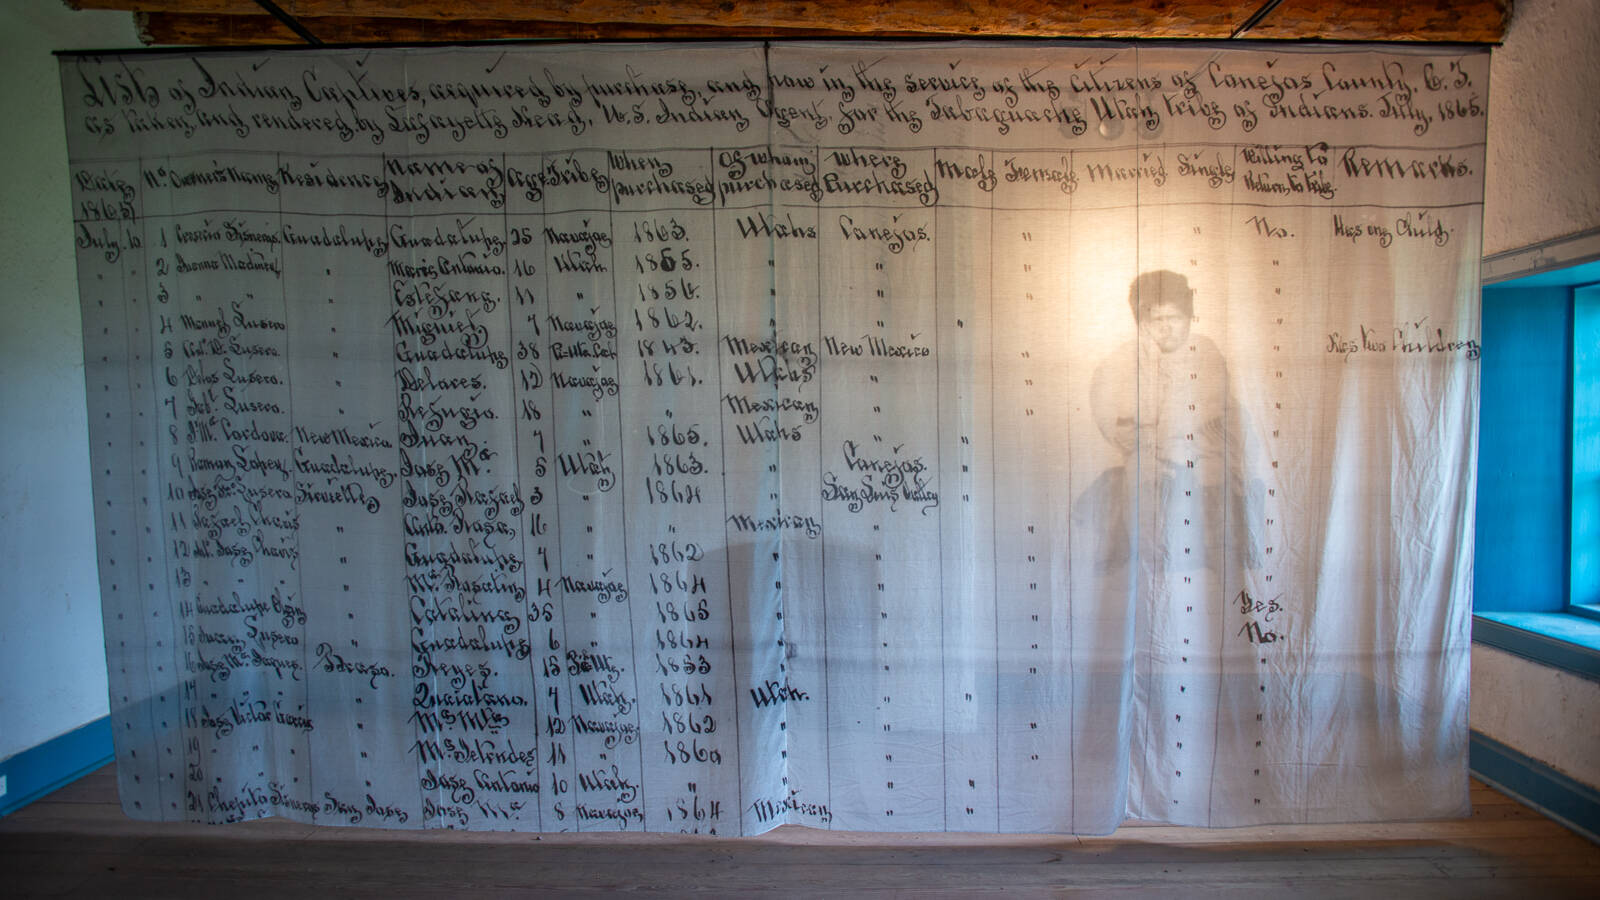 Lists of Indian Captives, acquired by purchase, and now in the service of the citizens of Conejos County, C. T.
as taken and rendered by Lafayette Head, U. S. Indian Agent, for the Tabaguache Utah tribe of Indians. July, 1865.
Date 1865 No. Owner's Name Residence Name of Indian Age Tribe When purchased Of whom purchased Where Purchased Male Female Married Single Willing to Return to tribe Remarks.
July 10 1 Guadalupe Guadalupe 25 Navajoe 1863. Utahs Conejos. " " No. Has one Child.
" " 2 Juana Martinez " Maria Antonia. 16 Utah 1855. " " " " "
" " 3 " " " Estefana. 11 " 1856. " " " " "
" " 4 Manuel Lusero " Miguel 7 Navajoe 1862. " " " " "
" " 5 Lusero. " Guadalupe 38 1843. Mexican New Mexico " " " Has two Children
" " 6 Lusero. " Delores. 12 Navajoe 1861. Utahs " " " "
" " 7 Lusero. " Refugio. 18 " " Mexican " " " "
" " 8 J. Ma. Cordova. New Mexico Juan. 7 " 1865. Utahs " " " "
" " 9 Roman Lopez. Guadalupe. Jose Ma. 5 Utah 1863. " Conejos. " " "
" " 10 Lusero Jose Rafael 5 " 1864 " San Luis Valley " " "
" " 11 Rafael Chavis " Anta. Rosa, 16 " " Mexican " " " "
" " 12 Jose Chavis " Guadalupe 7 " 1862 " " " " "
" " 13 " " " " 4 Navajoe 1864 " " " " "
" " 14 Guadalupe " Catalina 35 " 1865 " " " " Yes.
" " 15 Lusero " Guadalupe 6 " 1864 " " " " No.
" " 16 Jose Ma. Jaques. Brazo. Reyes. 15 1853 " " " " "
" " 17 " " " " Quiciano. 7 Utah. 1861 Utah. " " " "
" " 18 Jose Victor Garcia " 12 Navajoe 1862 " " " " "
" " 19 " " " " 11 " 1860 " " " " "
" " 20 " " " Jose Antonio 10 Utah. " " " " " "
" " 21 San Jose Jose Ma. 8 Navajoe 1864 Mexican " " " "